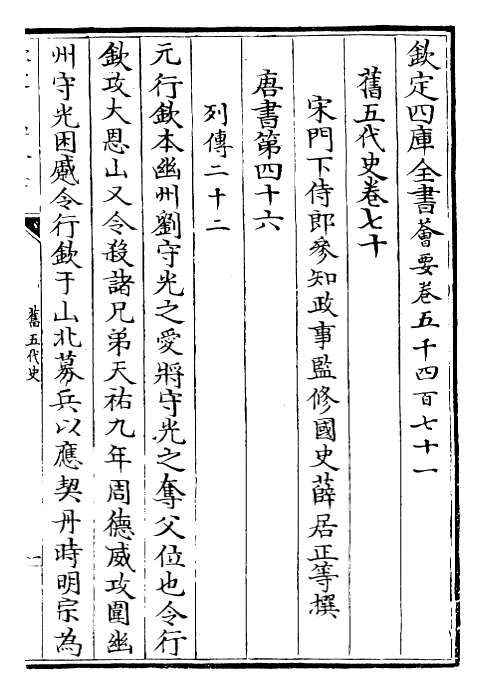 欽定四庫全書薈要卷五千四百七十一
舊五代史卷七十
宋門下侍郎參知政事監修國史薛居正等撰
唐書第四十六
列傳二十二
元行欽本幽州劉守光之愛將守光之奪父位也令行
欽攻大恩山又令殺諸兄弟天祐九年周德威攻圍幽
州守光困蹙令行欽于山北募兵以應契丹時明宗為
舊五代史
一